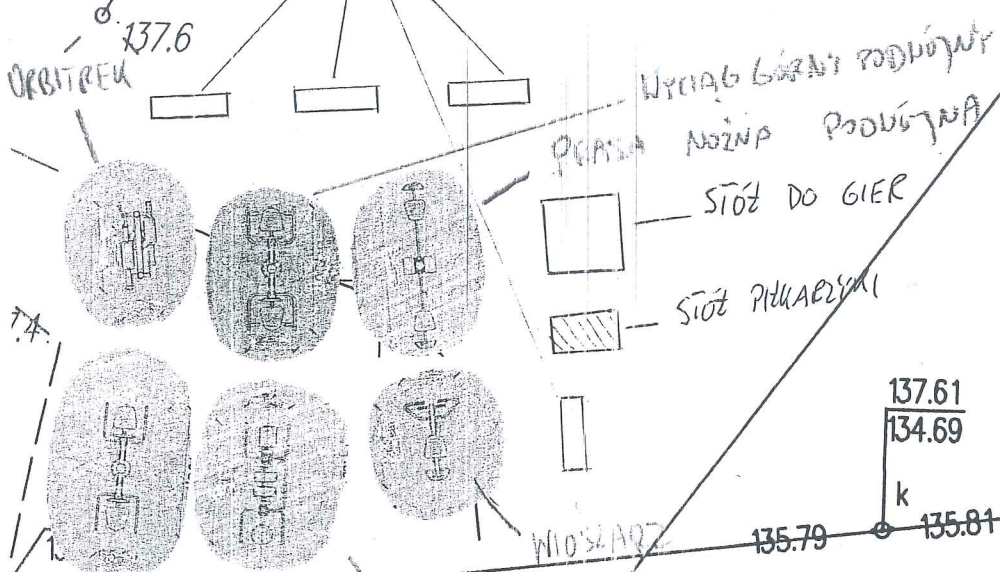 137.6
ORBITREK
WYCIĄG GÓRNY PODWÓJNY
PRASA NOŻNA PODWÓJNA
STÓŁ DO GIER
STÓŁ PIŁKARZYKI
137.61
134.69
k
135.79
135.81
WIOŚLARZ